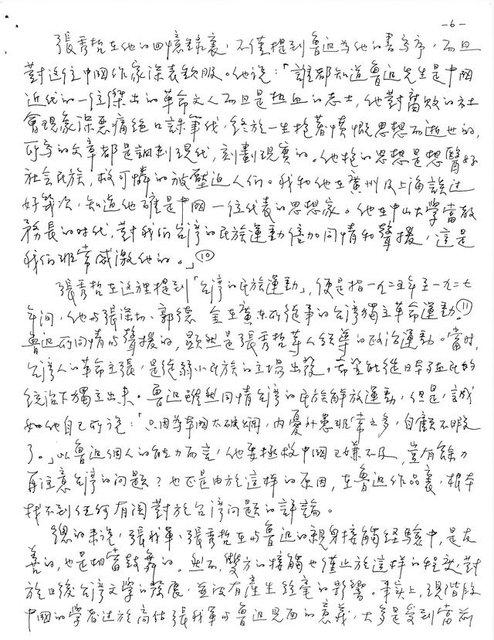 -6-
張秀哲在他的回憶錄裏,不僅提到魯迅為他的書寫序,而且
對這位中國作家深表欽服。他說:「誰都知道魯迅先生是中國
近代的一位傑出的革命文人而且是熱血的志士,他對腐敗的社
會現象深惡痛絕口誅筆伐,終於一生抱著憤慨思想而逝世的,
所寫的文章都是諷刺現代,刻劃現實的。他抱的思想是想醫好
社會民族,救可憐的被壓迫人們。我和他在廣州及上海談過
好幾次,知道他確是中國一位代表的思想家。他在中山大學當教
務長的時代,對我們台灣的民族運動倍加同情和聲援,這是
我們非常感激他的。」⑩
張秀哲在這裡提到「台灣的民族運動」,便是指一九二五年至一九二七
年間,他與張深切、郭德金在廣東所從事的台灣獨立革命運動。⑪
魯迅所同情與聲援的,顯然是張秀哲等人領導的政治運動。當時,
台灣人的革命主張,是從弱小民族的立場出發,希望能從日本殖民的
統治下獨立出來。魯迅雖然同情台灣的民族解放運動,但是,誠
如他自己所說:「只因為本國太破爛,內憂外患非常之多,自顧不暇
了。」以魯迅個人的能力而言,他要拯救中國已嫌不及,豈有餘力
再注意台灣的問題?也正是由於這樣的原因,在魯迅作品裏,根本
找不到任何有關對於台灣問題的評論。
總的來說,張我軍、張秀哲在與魯迅的親身接觸經驗中,是友
善的,也是相當鼓舞的。然而,雙方的接觸也僅止於這樣的程度,對
於日後台灣文學的發展,並沒有產生經重的影響。事實上,現階段
中國的學者過於高估張我軍與魯迅見面的意義,大多是受到當前